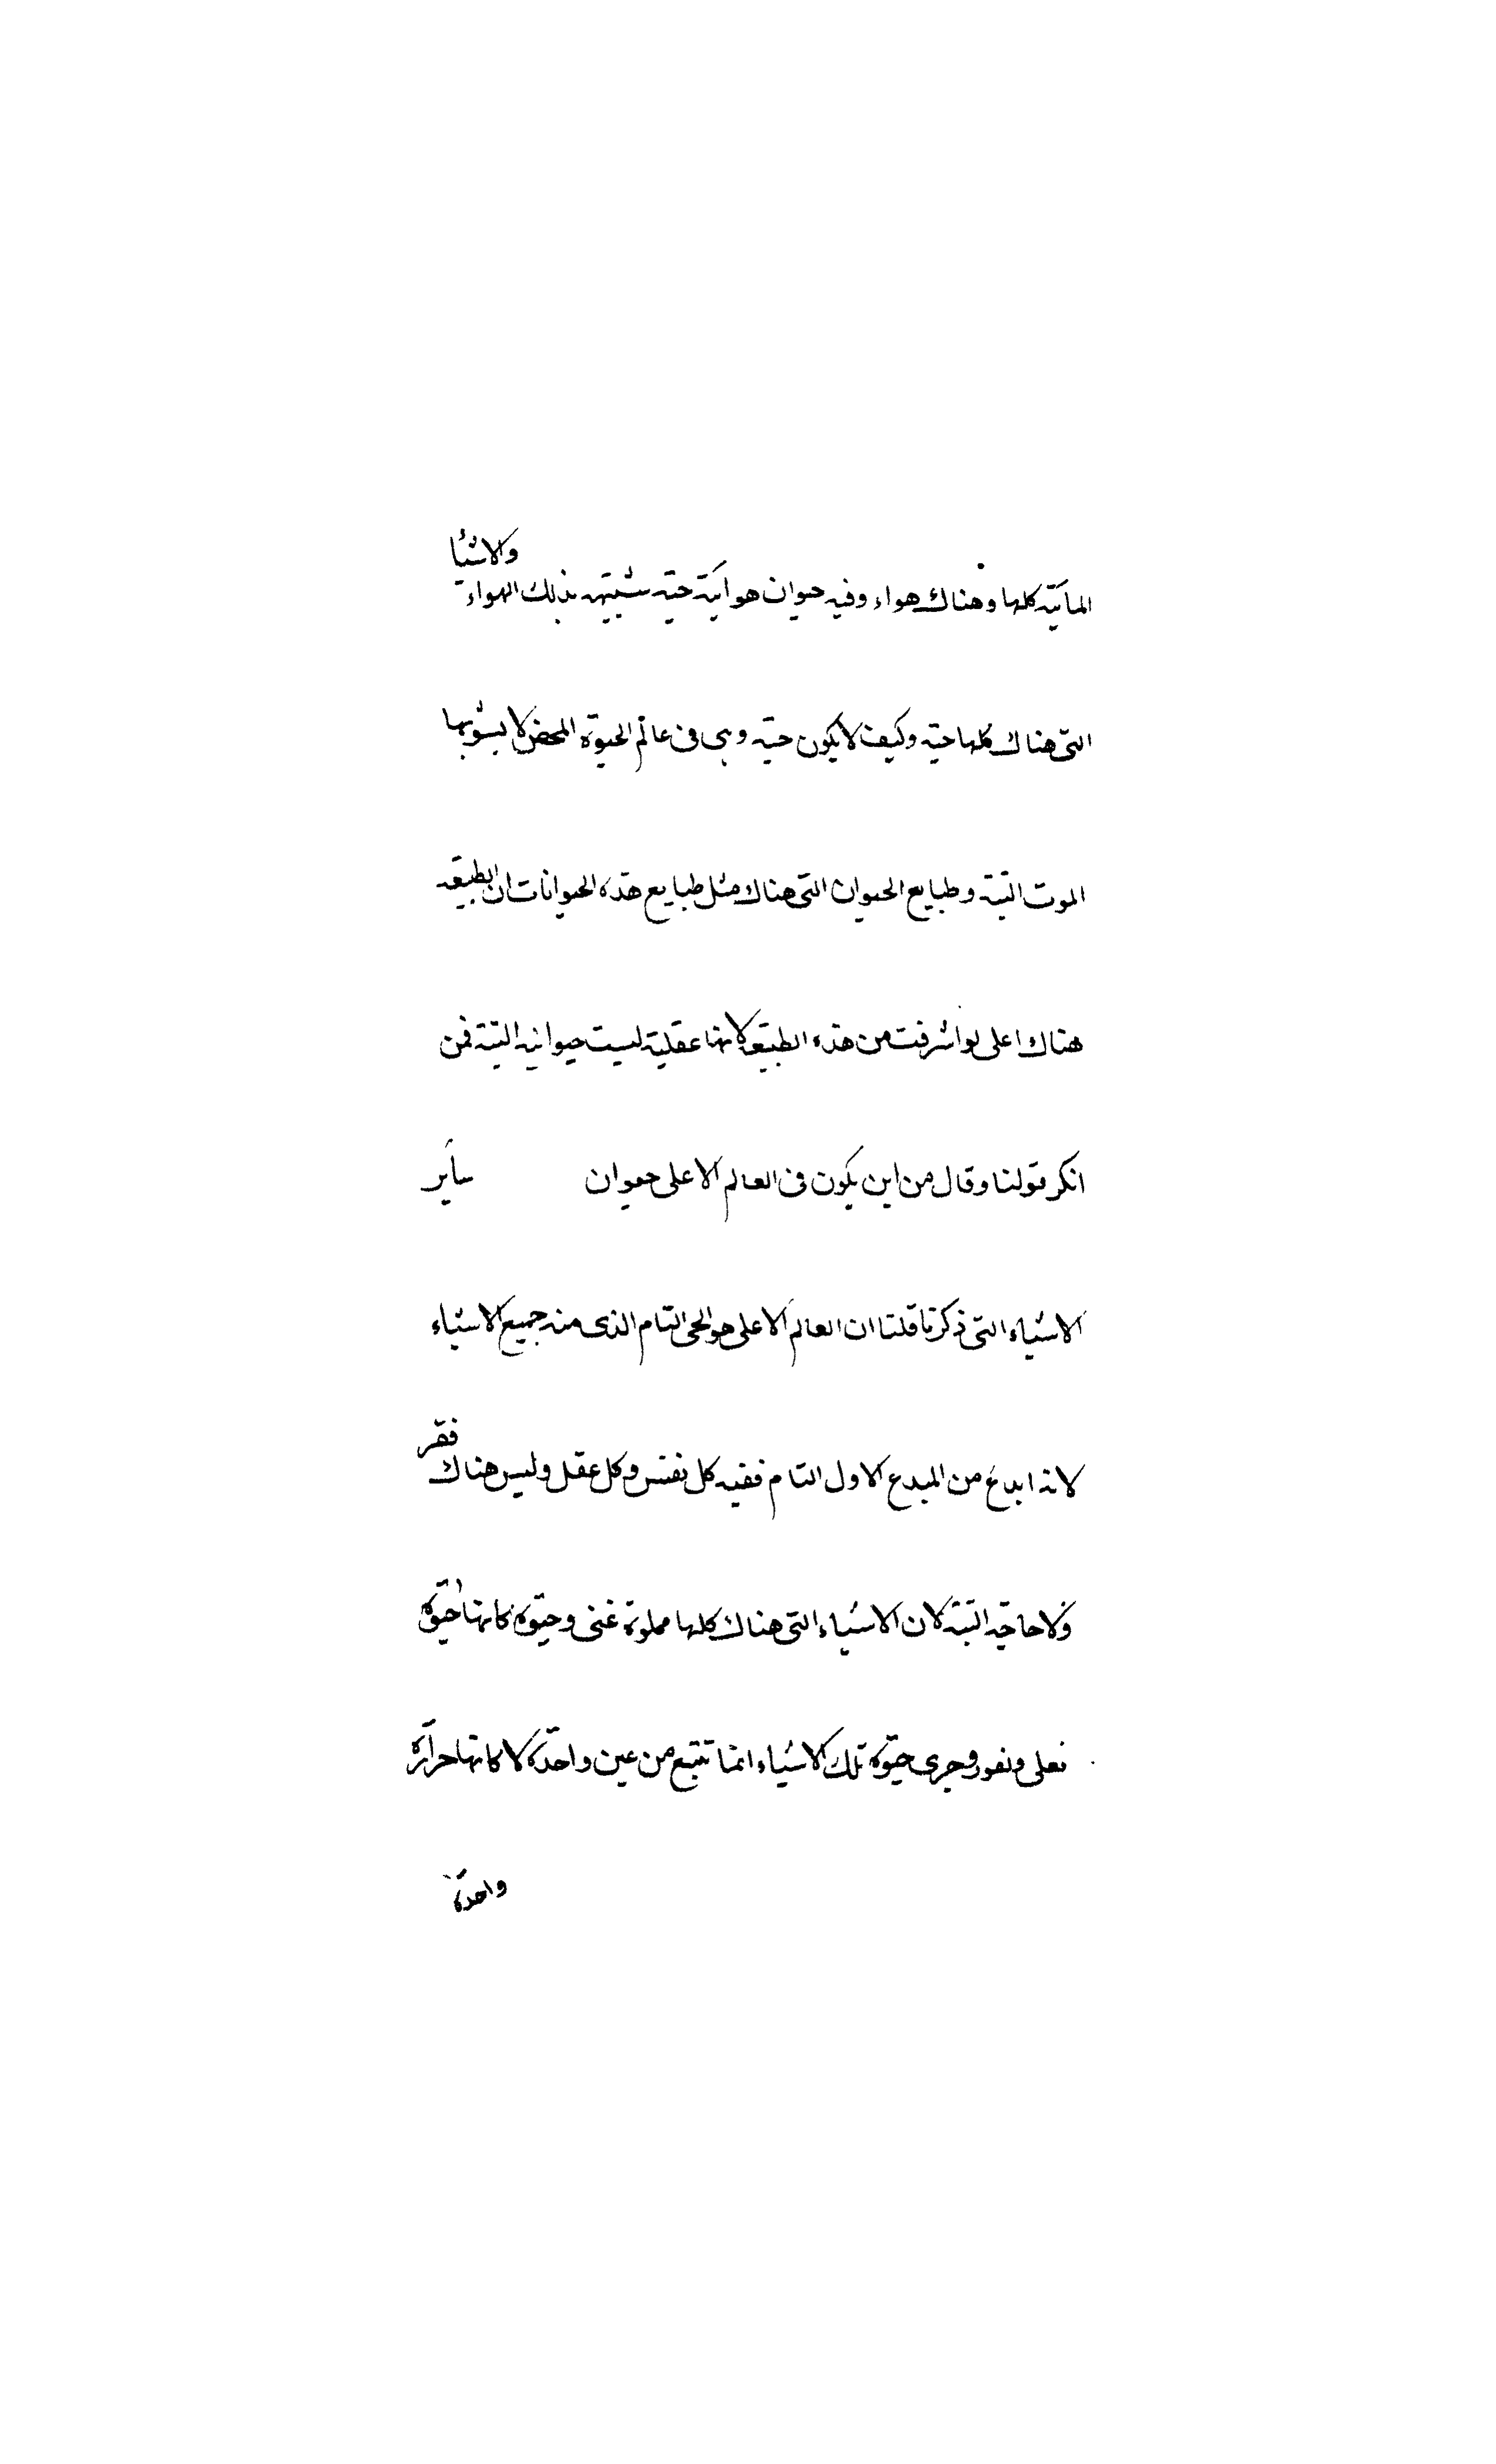 المائية كلها وهناك هواء وفيه حيوان هوائية حية شبيهه بذلك الهواء والاشيا
التى هناك كلها حية وكيف لا يكون حية وهى فى عالم الحيوة المحض لا يشوبها
الموت البتة وطبايع الحيوان التى هناك مثل طبايع هذه الحيوانات ان الطبيعه
هناك اعلى واشرفت من هذه الطبيعة لانها عقلية ليست حيوانيه البتة فمن
انكر قولنا وقال من اين يكون فى العالم الاعلى حيوان ساير
الاشياء التى ذكرنا قلنا ان العالم الاعلى هو الحى التام الذى منه جميع الاشياء
لانه ابدع من المبدع الاول التام ففيه كل نفس وكل عقل وليس هناك فقر
ولا حاجة البتة لان الاشياء التى هناك كلها مملوة غنى وحيوة كانها حيوة
تغلى وتفور وجرى حيوة تلك الاشياء انما تنبع من عين واحدة لا كانها حرارة
واحدة